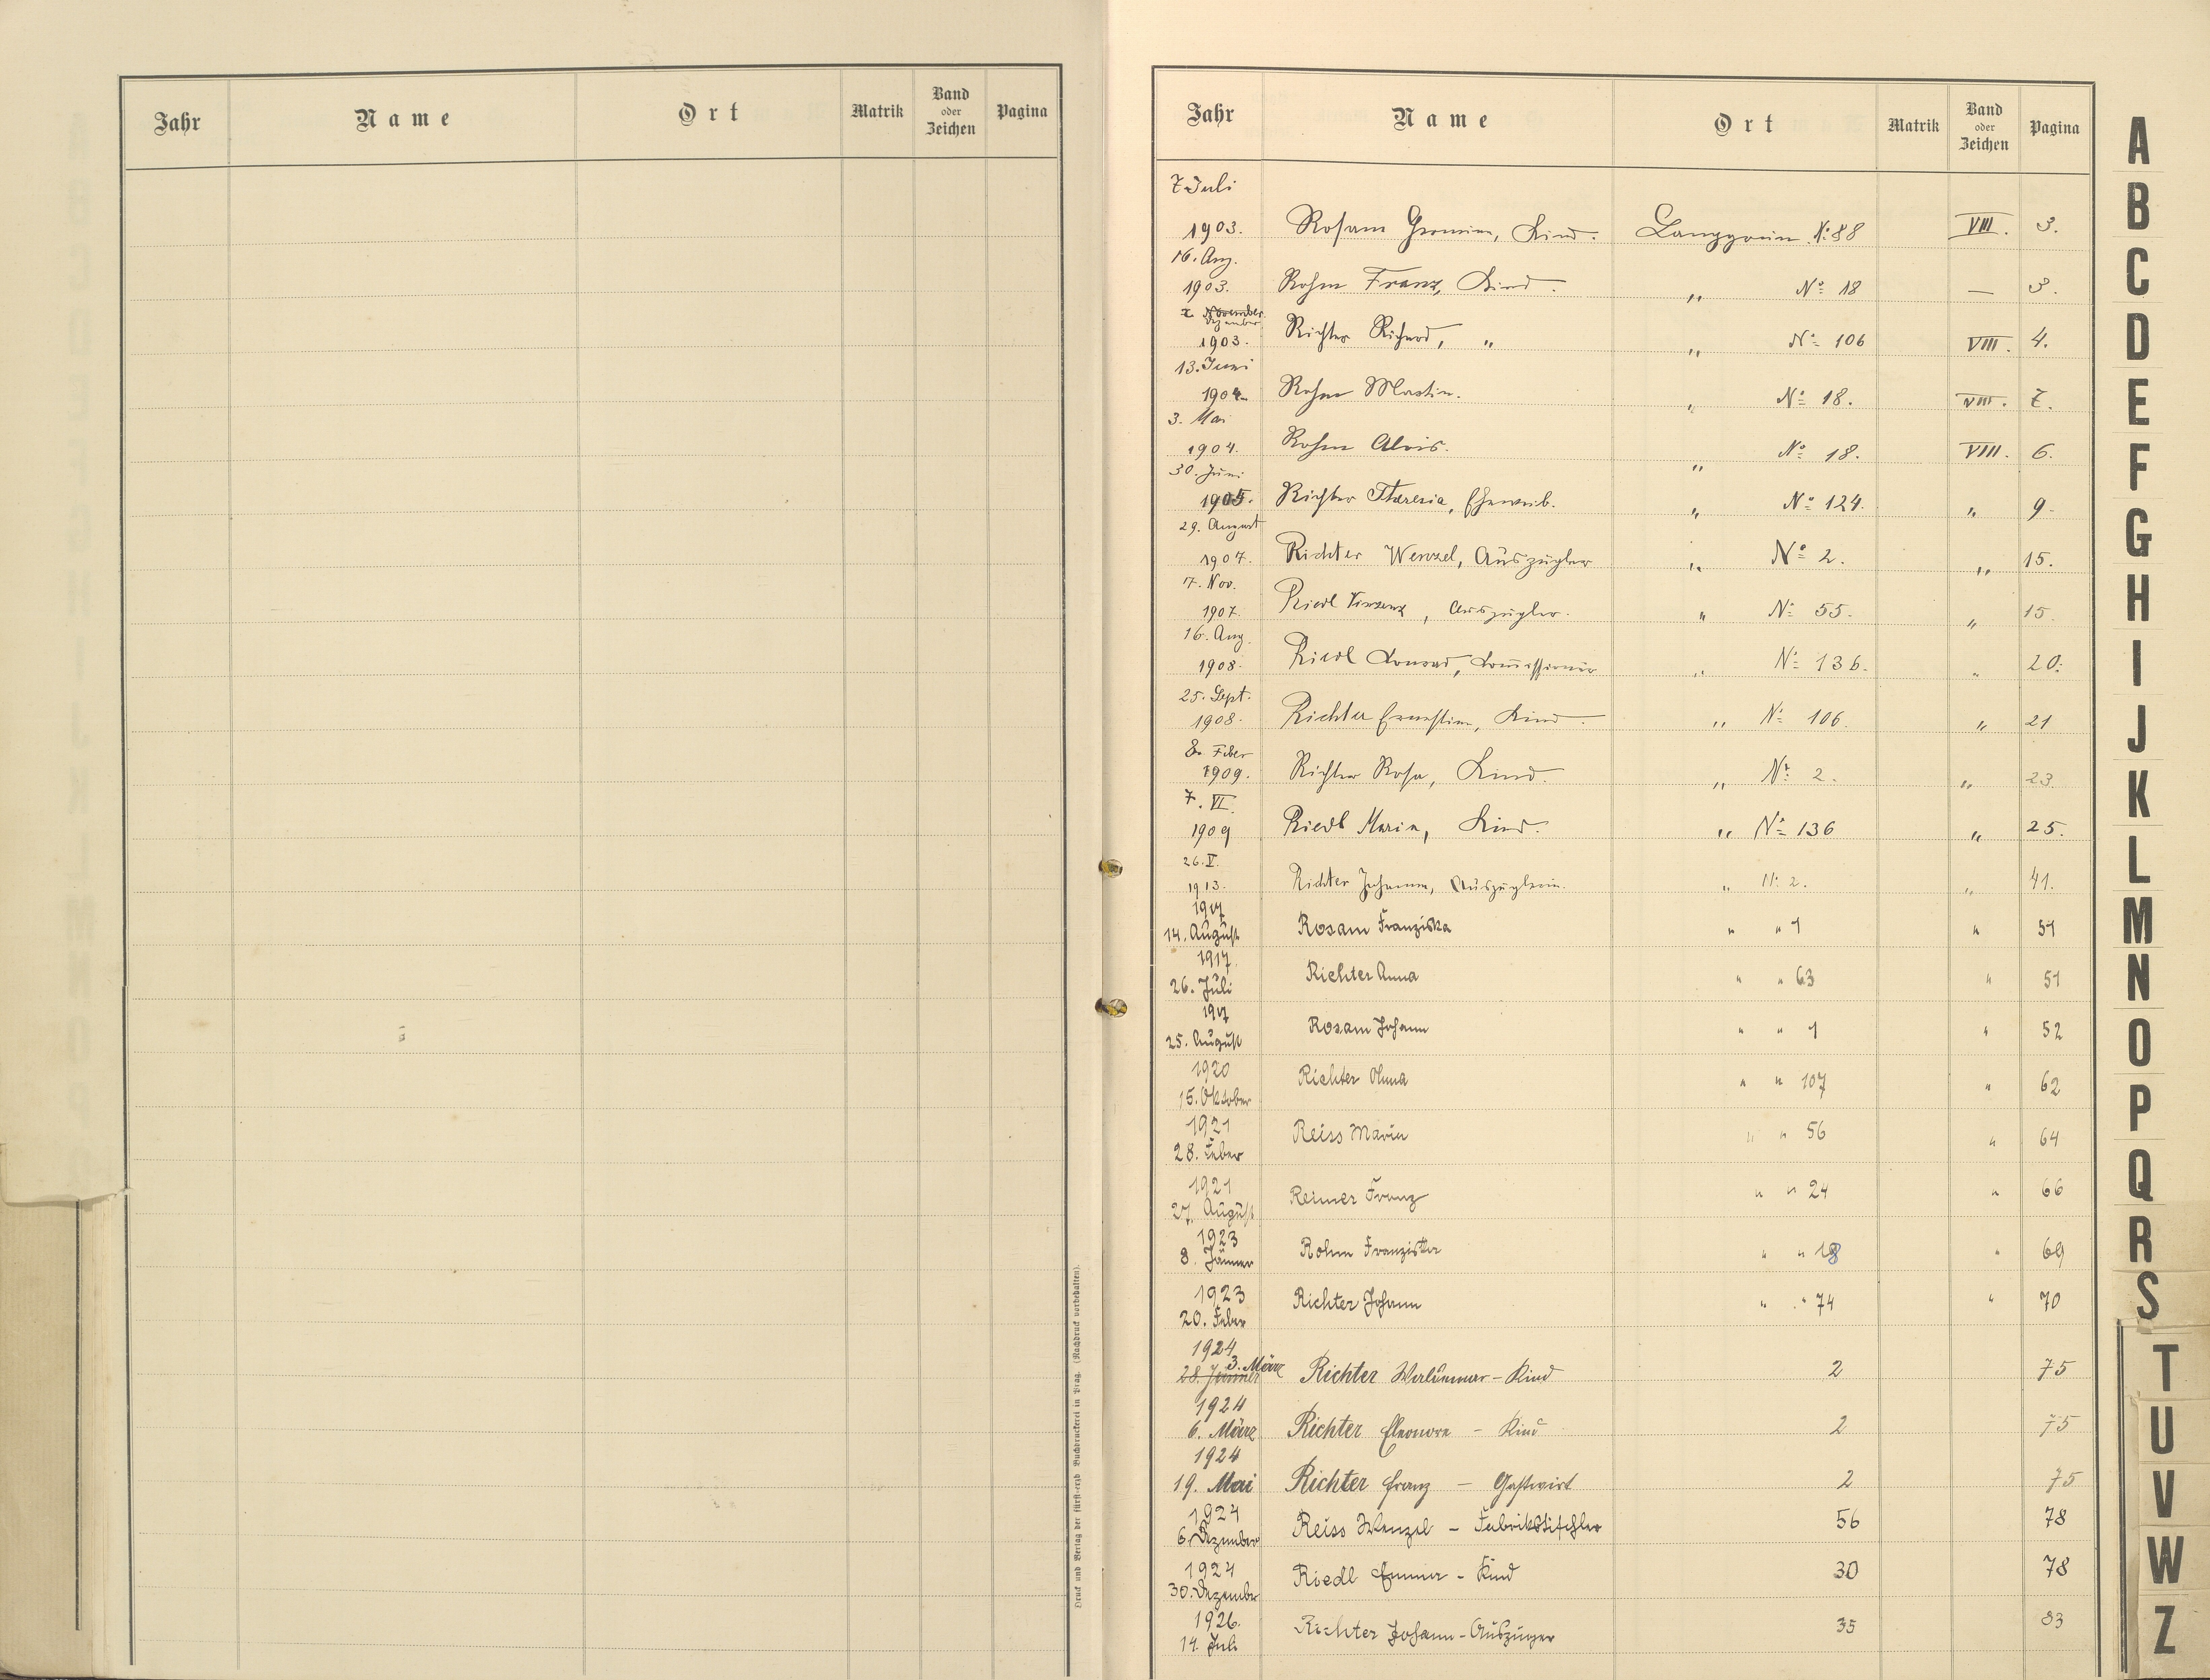 Jahr Name Ort Matrik Band oder Zeichen Pagina
Druck und Verlag der fürst-erzb. Buchdruckerei in Prag. (Nachdruck vorbehalten).
Jahr Name Ort Matrik Band oder Zeichen Pagina
7 Juli
1903. Rosam Kind. Langgrün N: 88 VIII. 3.
16. Aug.
1903. Rohm Franz, Kind. " No 18 — 3.
November
Dezember
1903. Richter Richard, " " No 106 VIII. 4.
13. Juni
1904 Rohm Martin. " No 18. VIII. 7.
3. Mai
1904. Rohm Alois. " No 18. VIII. 6.
30. Juni
1905. Richter Theresia, Eheweib. " No 124. " 9.
29. August
1907. Richter Wenzel, Auszügler " No 2. " 15.
7. Nov.
1907. Riedl Vinzenz, Auszügler. " No 55. " 15.
16. Aug.
1908. Riedl Konrad, " No 136. " 20.
25. Sept.
1908. Richter Ernestine, Kind. " No 106. " 21
8. Feber
1909. Richter Rosa, Kind. " No 2. " 23
7. VI.
1909 Riedl Maria, Kind. " No 136 " 25.
26. V.
1913. Richter Johanna, Auszüglerin. " N: 2. " 41.
1917
14. August Rosam Franziska " " 1 " 51
1917.
26. Juli Richter Anna " " 63 " 51
1917
25. August Rosam Johann " " 1 " 52
1920
15. Oktober Richter Anna " " 107 " 62
1921
28. Feber Reiss Maria " " 56 " 64
1921
27. August Reimer Franz " " 24 " 66
1923
8. Jänner Rohm Franziska " " 18 " 69
1923
20. Feber Richter Johann " " 74 " 70
1924
28. Jänner 3. März Richter Waldemar – Kind 2 75
1924
6. März Richter Eleonore – Kind 2 75
1924
19. Mai Richter Franz – Gastwirt 2 75
1924
6. Dezember Reiss Wenzel – Fabrikstischler 56 78
1924
30. Dezember Riedl Emma – Kind 30 78
1926.
14. Juli Richter Johann – Auszügler 35 83
A
B
C
D
E
F
G
H
I
J
K
L
M
N
O
P
Q
R
S
T
U
V
W
Z